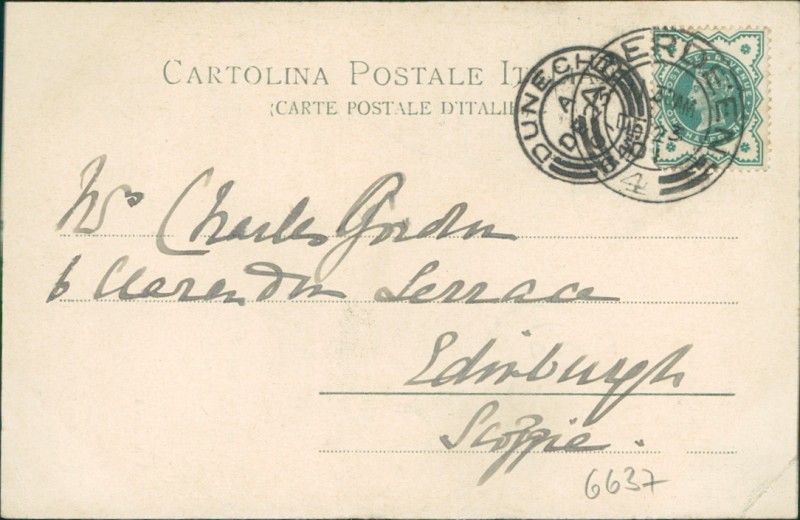 CARTOLINA POSTALE IT
(CARTE POSTALE D'ITALIE
DUNECHT
ABERDEEN
4
Mrs Charles Gordon
6 Clarendon Terrace
Edinburgh
6637